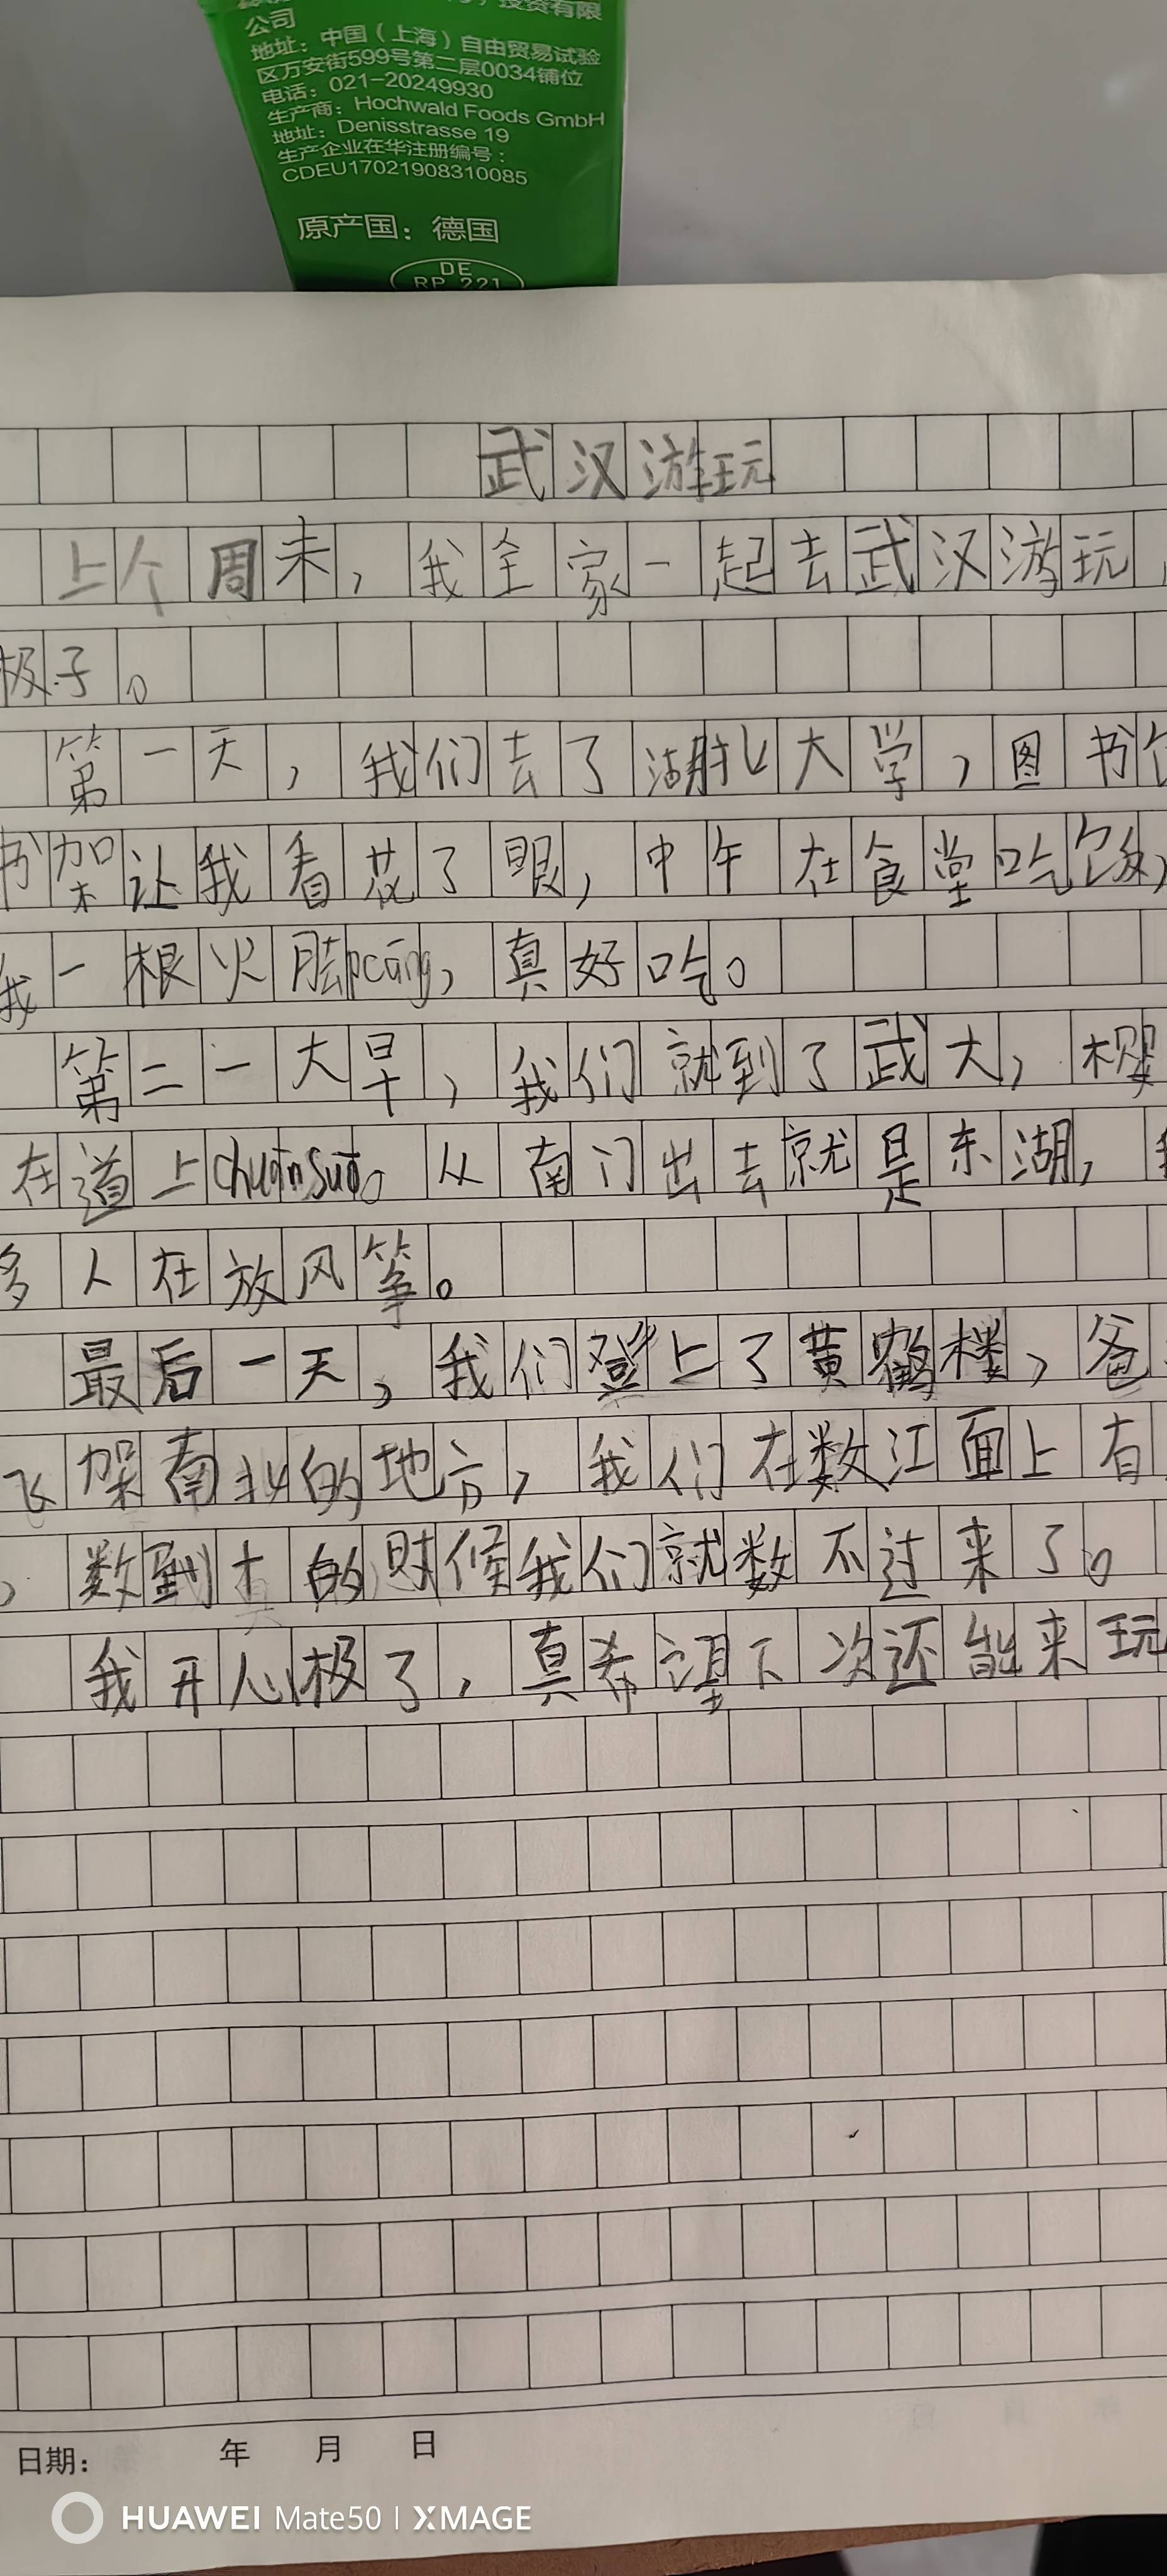 投资有限
公司
地址：中国（上海）自由贸易试验
区万安街599号第二层0034铺位
电话：021-20249930
生产商：Hochwald Foods GmbH
地址：Denisstrasse 19
生产企业在华注册编号：
CDEU17021908310085
原产国：德国
DE
RP 221
武汉游玩
上个周末，我全家一起去武汉游玩
极子。
第一天，我们去了湖北大学，图书
书架让我看花了眼，中午在食堂吃饭，
我一根火腿cāng，真好吃。
第二一大早，我们就到了武大，樱
在道上chuānsuō。从南门出去就是东湖，
多人在放风筝。
最后一天，我们登上了黄鹤楼，爸
飞架南北的地方，我们在数江面上有
，数到十的时候我们就数不过来了。
我开心极了，真希望下次还能来玩
日期： 年 月 日
HUAWEI Mate50 | XMAGE